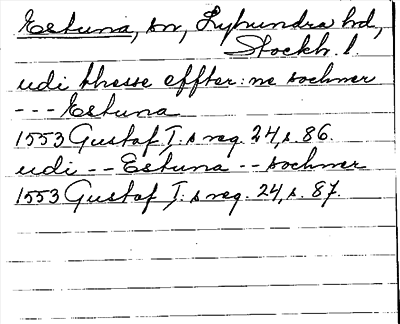 Estuna, sn, Lyhundra hd,
Stockh. l.
udi thesse effter: ne sochner
--- Estuna
1553 Gustaf I: s reg. 24, s. 86.
udi -- Estuna -- sochner
1553 Gustaf I: s reg. 24, s. 87.